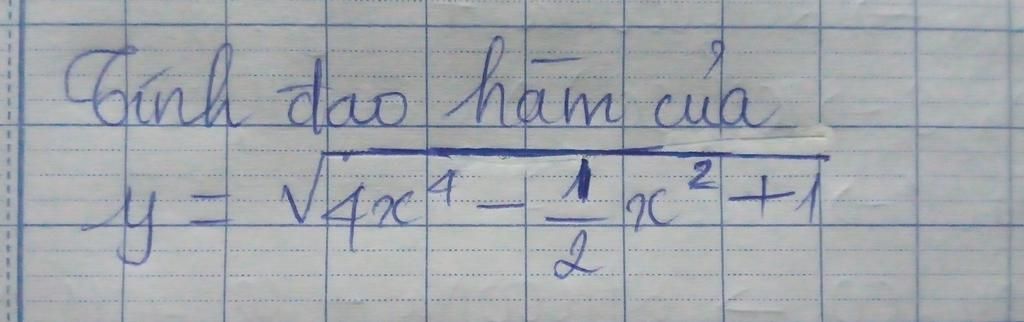 Tính đao hām của
y = √(4x⁴ - 1/2 x² + 1)